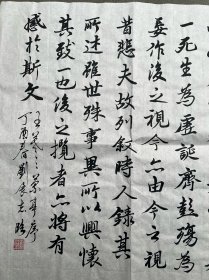 一死生為虛誕齊彭殤為
妄作後之視今亦由今之視
昔悲夫故列叙時人録其
所述雖世殊事異所以興懷
其致一也後之攬者亦將有
感於斯文
王羲之蘭亭序
丁酉春劉